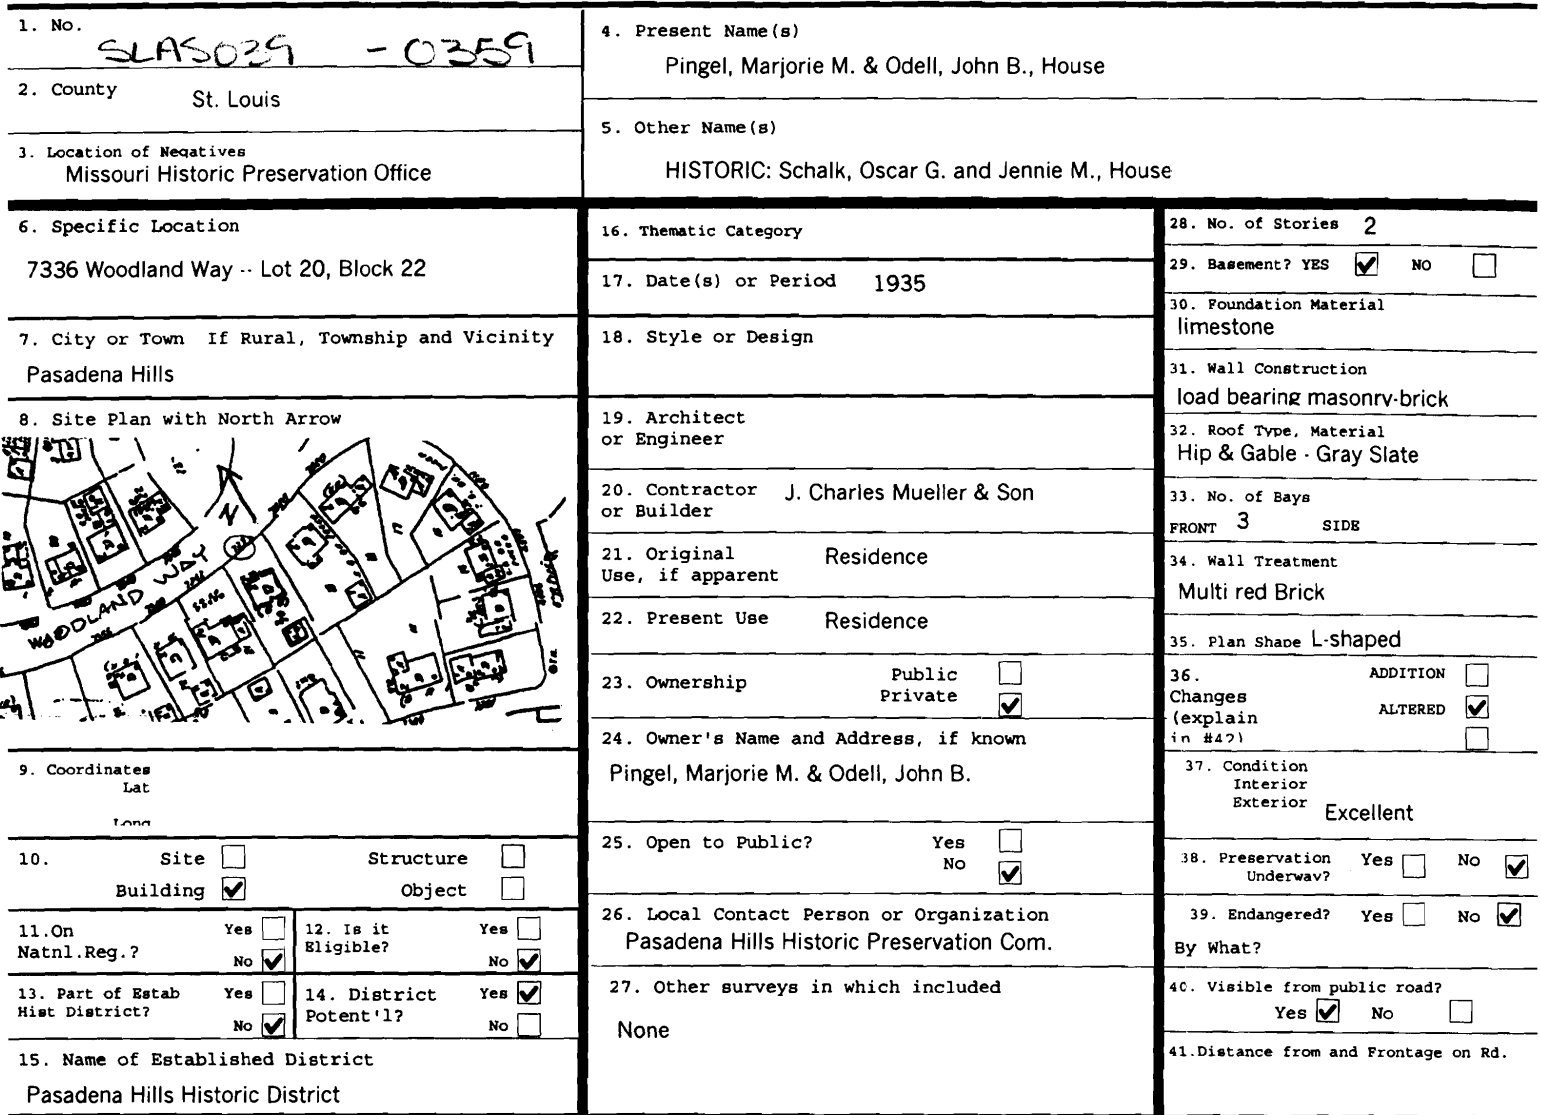 1. No.
SLAS029 - 0359
2. County
St. Louis
3. Location of Negatives
Missouri Historic Preservation Office
4. Present Name(s)
Pingel, Marjorie M. & Odell, John B., House
5. Other Name(s)
HISTORIC: Schalk, Oscar G. and Jennie M., House
6. Specific Location
7336 Woodland Way -- Lot 20, Block 22
7. City or Town If Rural, Township and Vicinity
Pasadena Hills
8. Site Plan with North Arrow
N
WOODLAND WAY
9. Coordinates
Lat
Long
10. Site Structure
Building ✔ Object
11.On Natnl.Reg.? Yes
No ✔
12. Is it Eligible? Yes
No ✔
13. Part of Estab Hist District? Yes
No ✔
14. District Potent'l? Yes ✔
No
15. Name of Established District
Pasadena Hills Historic District
16. Thematic Category
17. Date(s) or Period 1935
18. Style or Design
19. Architect
or Engineer
20. Contractor J. Charles Mueller & Son
or Builder
21. Original Residence
Use, if apparent
22. Present Use Residence
23. Ownership Public
Private ✔
24. Owner's Name and Address, if known
Pingel, Marjorie M. & Odell, John B.
25. Open to Public? Yes
No ✔
26. Local Contact Person or Organization
Pasadena Hills Historic Preservation Com.
27. Other surveys in which included
None
28. No. of Stories 2
29. Basement? YES ✔ NO
30. Foundation Material
limestone
31. Wall Construction
load bearing masonry-brick
32. Roof Type, Material
Hip & Gable - Gray Slate
33. No. of Bays
FRONT 3 SIDE
34. Wall Treatment
Multi red Brick
35. Plan Shape L-shaped
36. ADDITION
Changes
(explain ALTERED ✔
in #42)
37. Condition
Interior
Exterior Excellent
38. Preservation Yes No ✔
Underway?
39. Endangered? Yes No ✔
By What?
40. Visible from public road?
Yes ✔ No
41.Distance from and Frontage on Rd.